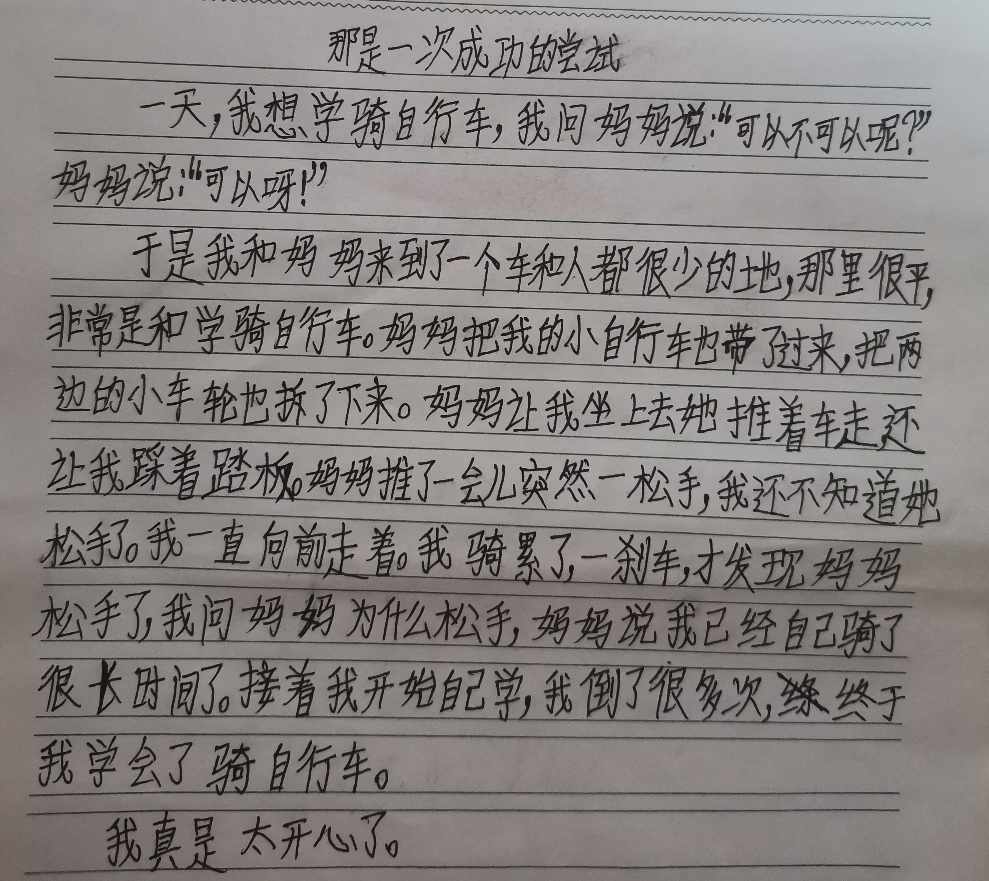 那是一次成功的尝试
一天,我想学骑自行车,我问妈妈说:“可以不可以呢?”
妈妈说:“可以呀!”
于是我和妈妈来到了一个车和人都很少的土地,那里很平,
非常是和学骑自行车。妈妈把我的小自行车也带了过来,把两
边的小车轮也拆了下来。妈妈让我坐上去她推着车走,还
让我踩着踏板。妈妈推了一会儿突然一松手,我还不知道她
松手了。我一直向前走着。我骑累了,一刹车,才发现妈妈
松手了,我问妈妈为什么松手,妈妈说我已经自己骑了
很长时间了。接着我开始自己学,我倒了很多次,终于
我学会了骑自行车。
我真是太开心了。